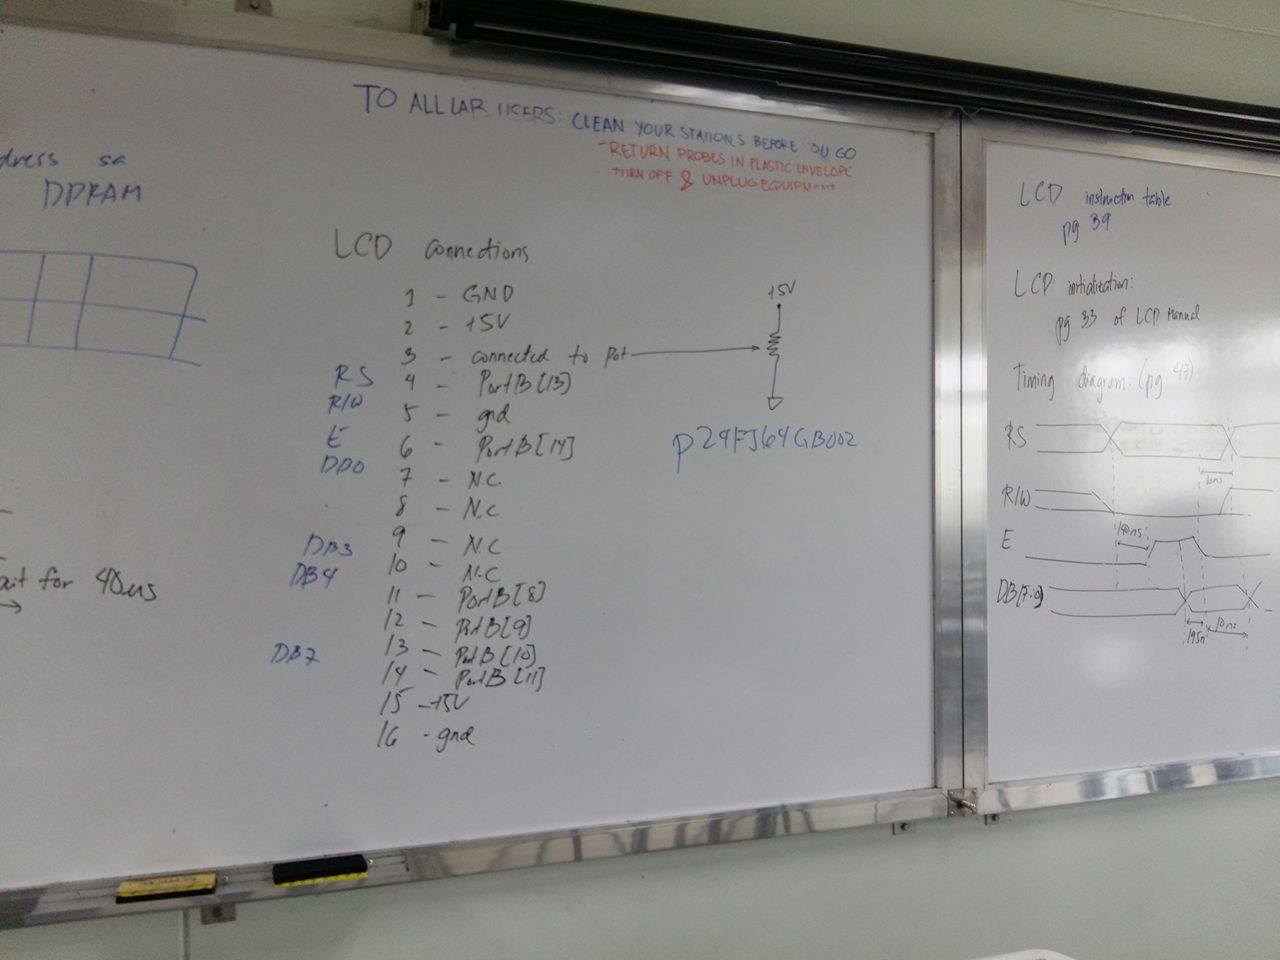 TO ALL LAB USERS: CLEAN YOUR STATIONS BEFORE YOU GO
- RETURN PROBES IN PLASTIC ENVELOPE
TURN OFF & UNPLUG EQUIPMENT
dress sa
DDRAM
ait for 40us
LCD connections
1 - GND
2 - +5V
3 - connected to pot
RS 4 - PortB[13]
R/W 5 - gnd
E 6 - PortB[14]
DB0 7 - N.C.
8 - N.C
9 - N.C
DB3 10 - N.C
DB4 11 - PortB[8]
12 - PortB[9]
13 - PortB[10]
DB7 14 - PortB[11]
15 - +5V
16 - gnd
+5V
p24FJ64GB002
LCD instruction table
pg 39
LCD initialization:
pg 33 of LCD Manual
Timing diagram: (pg
RS
R/W
140ns
E
DB[7:0]
195n
10ns